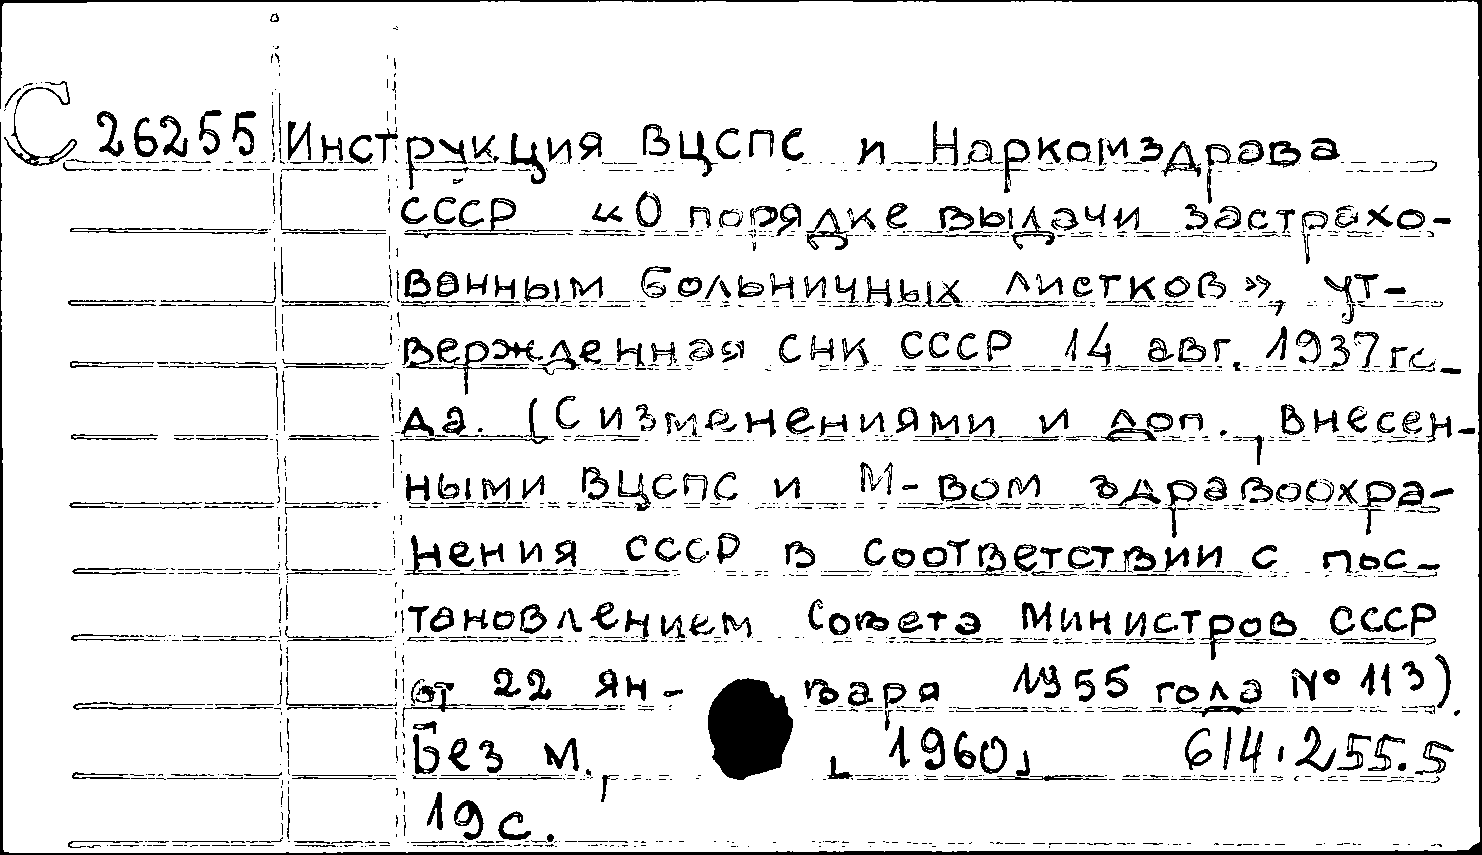 С 26255 Инструкция ВЦСПС и Наркомздрава
СССР «О порядке выдачи застрахо-
ванным больничных листков», ут-
вержденная СНК СССР 14 авг. 1937 го-
да. (С изменениями и доп., внесен-
ными ВЦСПС и М-вом здравоохра-
нения СССР в соответствии с пос-
тановлением Совета Министров СССР
от 22 ян- варя 1955 года № 113).
Без м., [1960] 614.255.5
19 с.